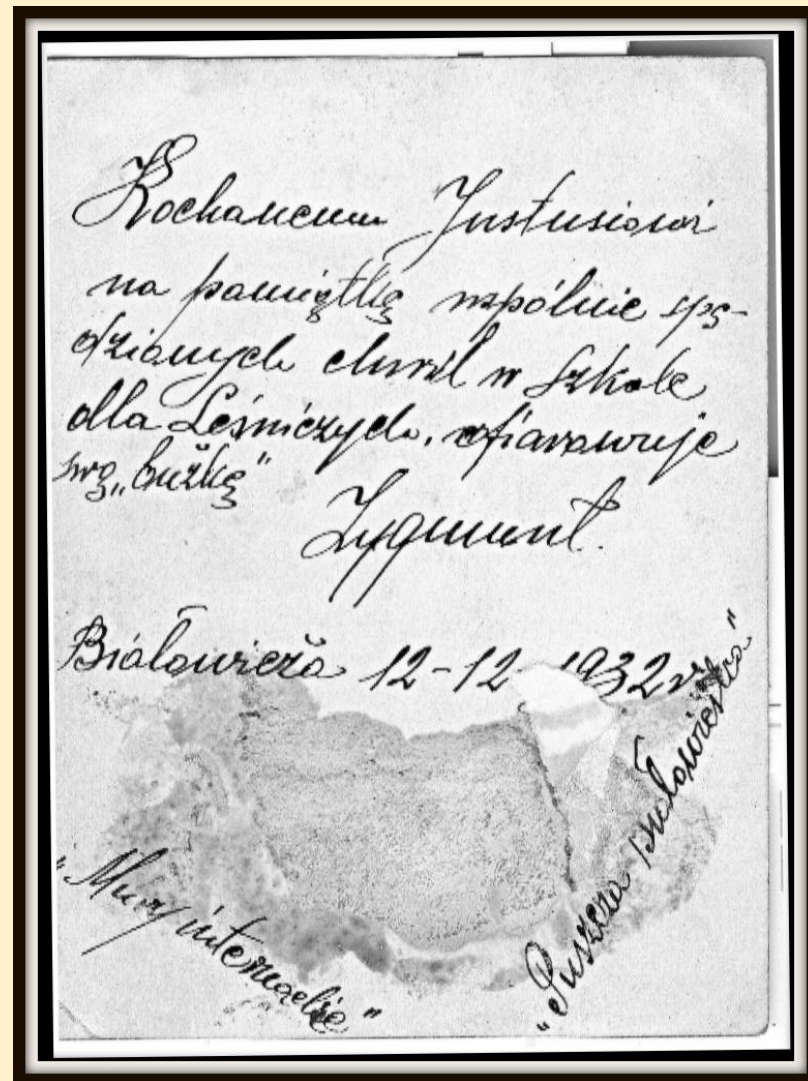 Kochanemu Justusiowi
na pamiątkę wspólnie spę-
dzionych chwil w Szkole
dla Leśniczych, ofiarowuje
swą „buźkę"
Zygmunt.
Białowieża 12-12 1932 r.
"Mury internackie"
"Puszcza Białowieska"